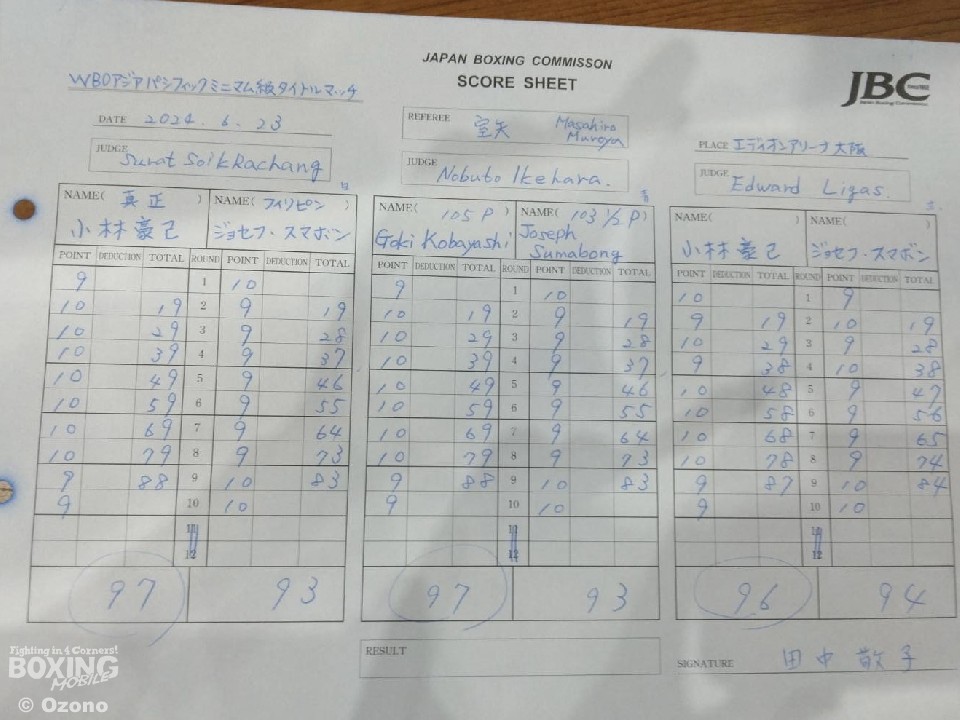 JAPAN BOXING COMMISSON
SCORE SHEET
JBC
WBOアジアパシフィックミニマム級タイトルマッチ
DATE 2024.6.23
REFEREE 室矢 Masahiro Muroya
PLACE エディオンアリーナ大阪
JUDGE Surat Soikrachang
JUDGE Nobuto Ikehara.
JUDGE Edward Ligas.
NAME( 真正 ) NAME( フィリピン ) NAME( 105 P ) NAME( 103 1/2 P ) NAME( ) NAME( )
小林豪己 ジョセフ・スマボン Goki Kobayashi Joseph Sumabong 小林豪己 ジョセフ・スマボン
POINT DEDUCTION TOTAL ROUND POINT DEDUCTION TOTAL POINT DEDUCTION TOTAL ROUND POINT DEDUCTION TOTAL POINT DEDUCTION TOTAL ROUND POINT DEDUCTION TOTAL
9 1 10 9 1 10 10 1 9
10 19 2 9 19 10 19 2 9 19 9 19 2 10 19
10 29 3 9 28 10 29 3 9 28 10 29 3 9 28
10 39 4 9 37 10 39 4 9 37 9 38 4 10 38
10 49 5 9 46 10 49 5 9 46 10 48 5 9 47
10 59 6 9 55 10 59 6 9 55 10 58 6 9 56
10 69 7 9 64 10 69 7 9 64 10 68 7 9 65
10 79 8 9 73 10 79 8 9 73 10 78 8 9 74
9 88 9 10 83 9 88 9 10 83 9 87 9 10 84
9 10 10 9 10 10 9 10 10
11 11 11
12 12 12
97 93 97 93 96 94
RESULT
SIGNATURE 田中敏子
Fighting in 4 Corners!
BOXING
MOBILE
© Ozono